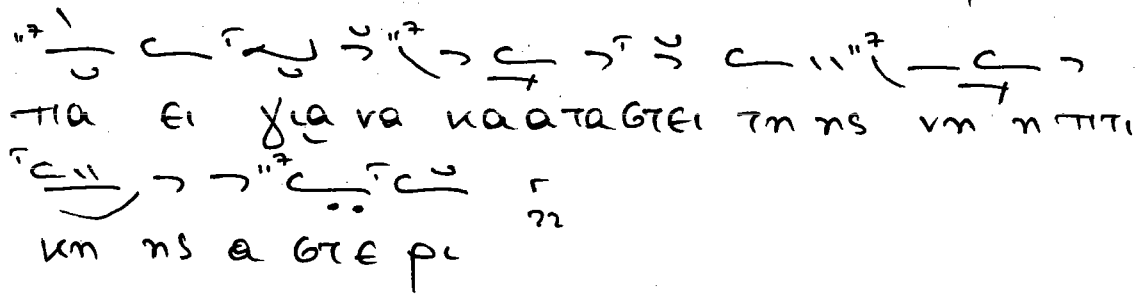 πα ει για να κα ατα στει τη ης νη η πτι
κη ης α στε ρι